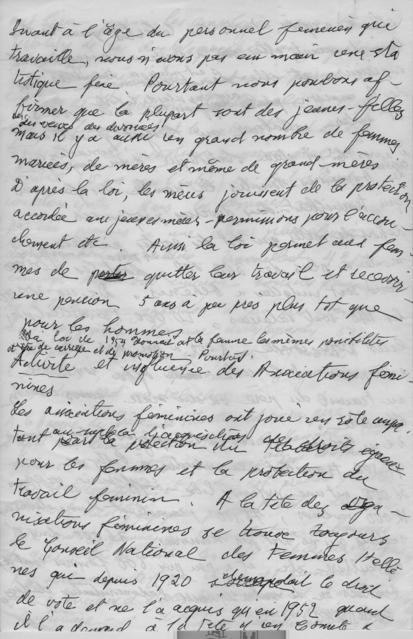 Quant à l'âge du personnel feminin qui
travaille, nous n'avons pas en main une sta
tistique fixe. Pourtant nous pouvons af
firmer que la plupart sont des jeunes-filles
ou veuves ou divorcées
mais il y a aussi un grand nombre de femmes
mariées, de mères et même de grand-mères
D'après la loi, les mères jouissent de la protection
accordée aux jeunes mères - permissions pour l'accou-
chement etc. Aussi la loi permet aux fem-
mes de quitter leur travail et recevoir
une pension 5 ans à peu près plus tôt que
pour les hommes
La loi de 1954 donnait à la femme les mêmes possibilités
de carrière et de promotion Pourtant
Activité et influence des Associations femi
nines
Les associations feminines ont joué un rôle impor
tant au sujet de l'acquisition des droits égaux
pour les femmes et la protection du
travail feminin. A la tête des Orga-
nisations féminines se trouve toujours
le Conseil National des Femmes Hellè
nes qui depuis 1920 le droit
de vote et ne l'a acquis qu'en 1952 quand
il l'a à la tête d'un Comité